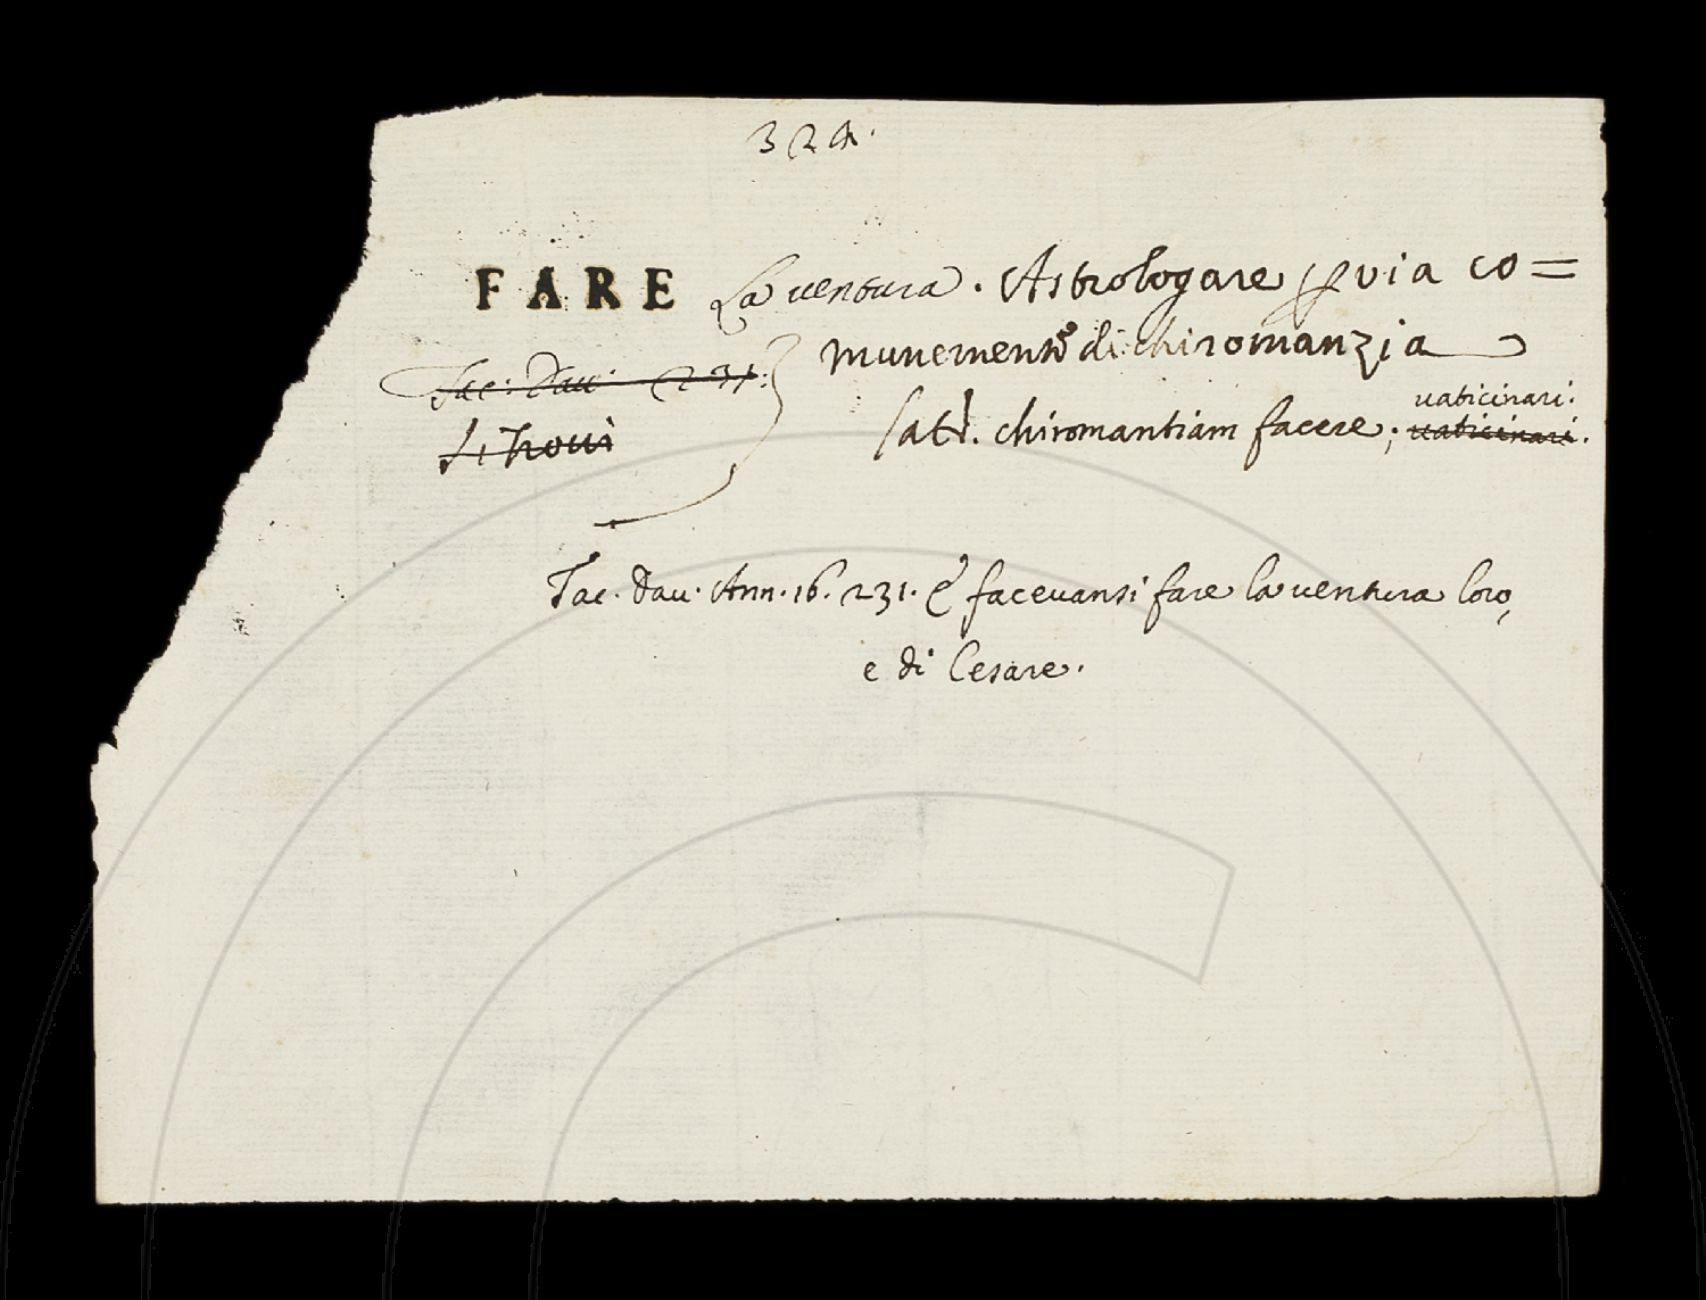 324.
FARE La ventura. Astrologare p via co=
munemente di chiromanzia
Tac. Dav. 231.
Si trovi
Lat. chiromantiam facere; vaticinari.
vaticinari.
Tac. Dav. Ann. 16. 231. E facevansi fare la ventura loro,
e di Cesare.